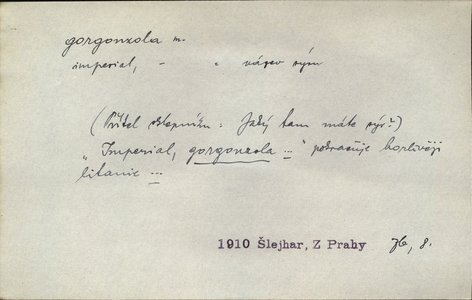 gorgonzola m.
imperial, - " název sýru
(Přítel sklepníku: Jaký tam máte sýr?)
„Imperial, gorgonzola ..." pokračuje horlivěji
litanie ...
1910 Šlejhar, Z Prahy 76, 8.